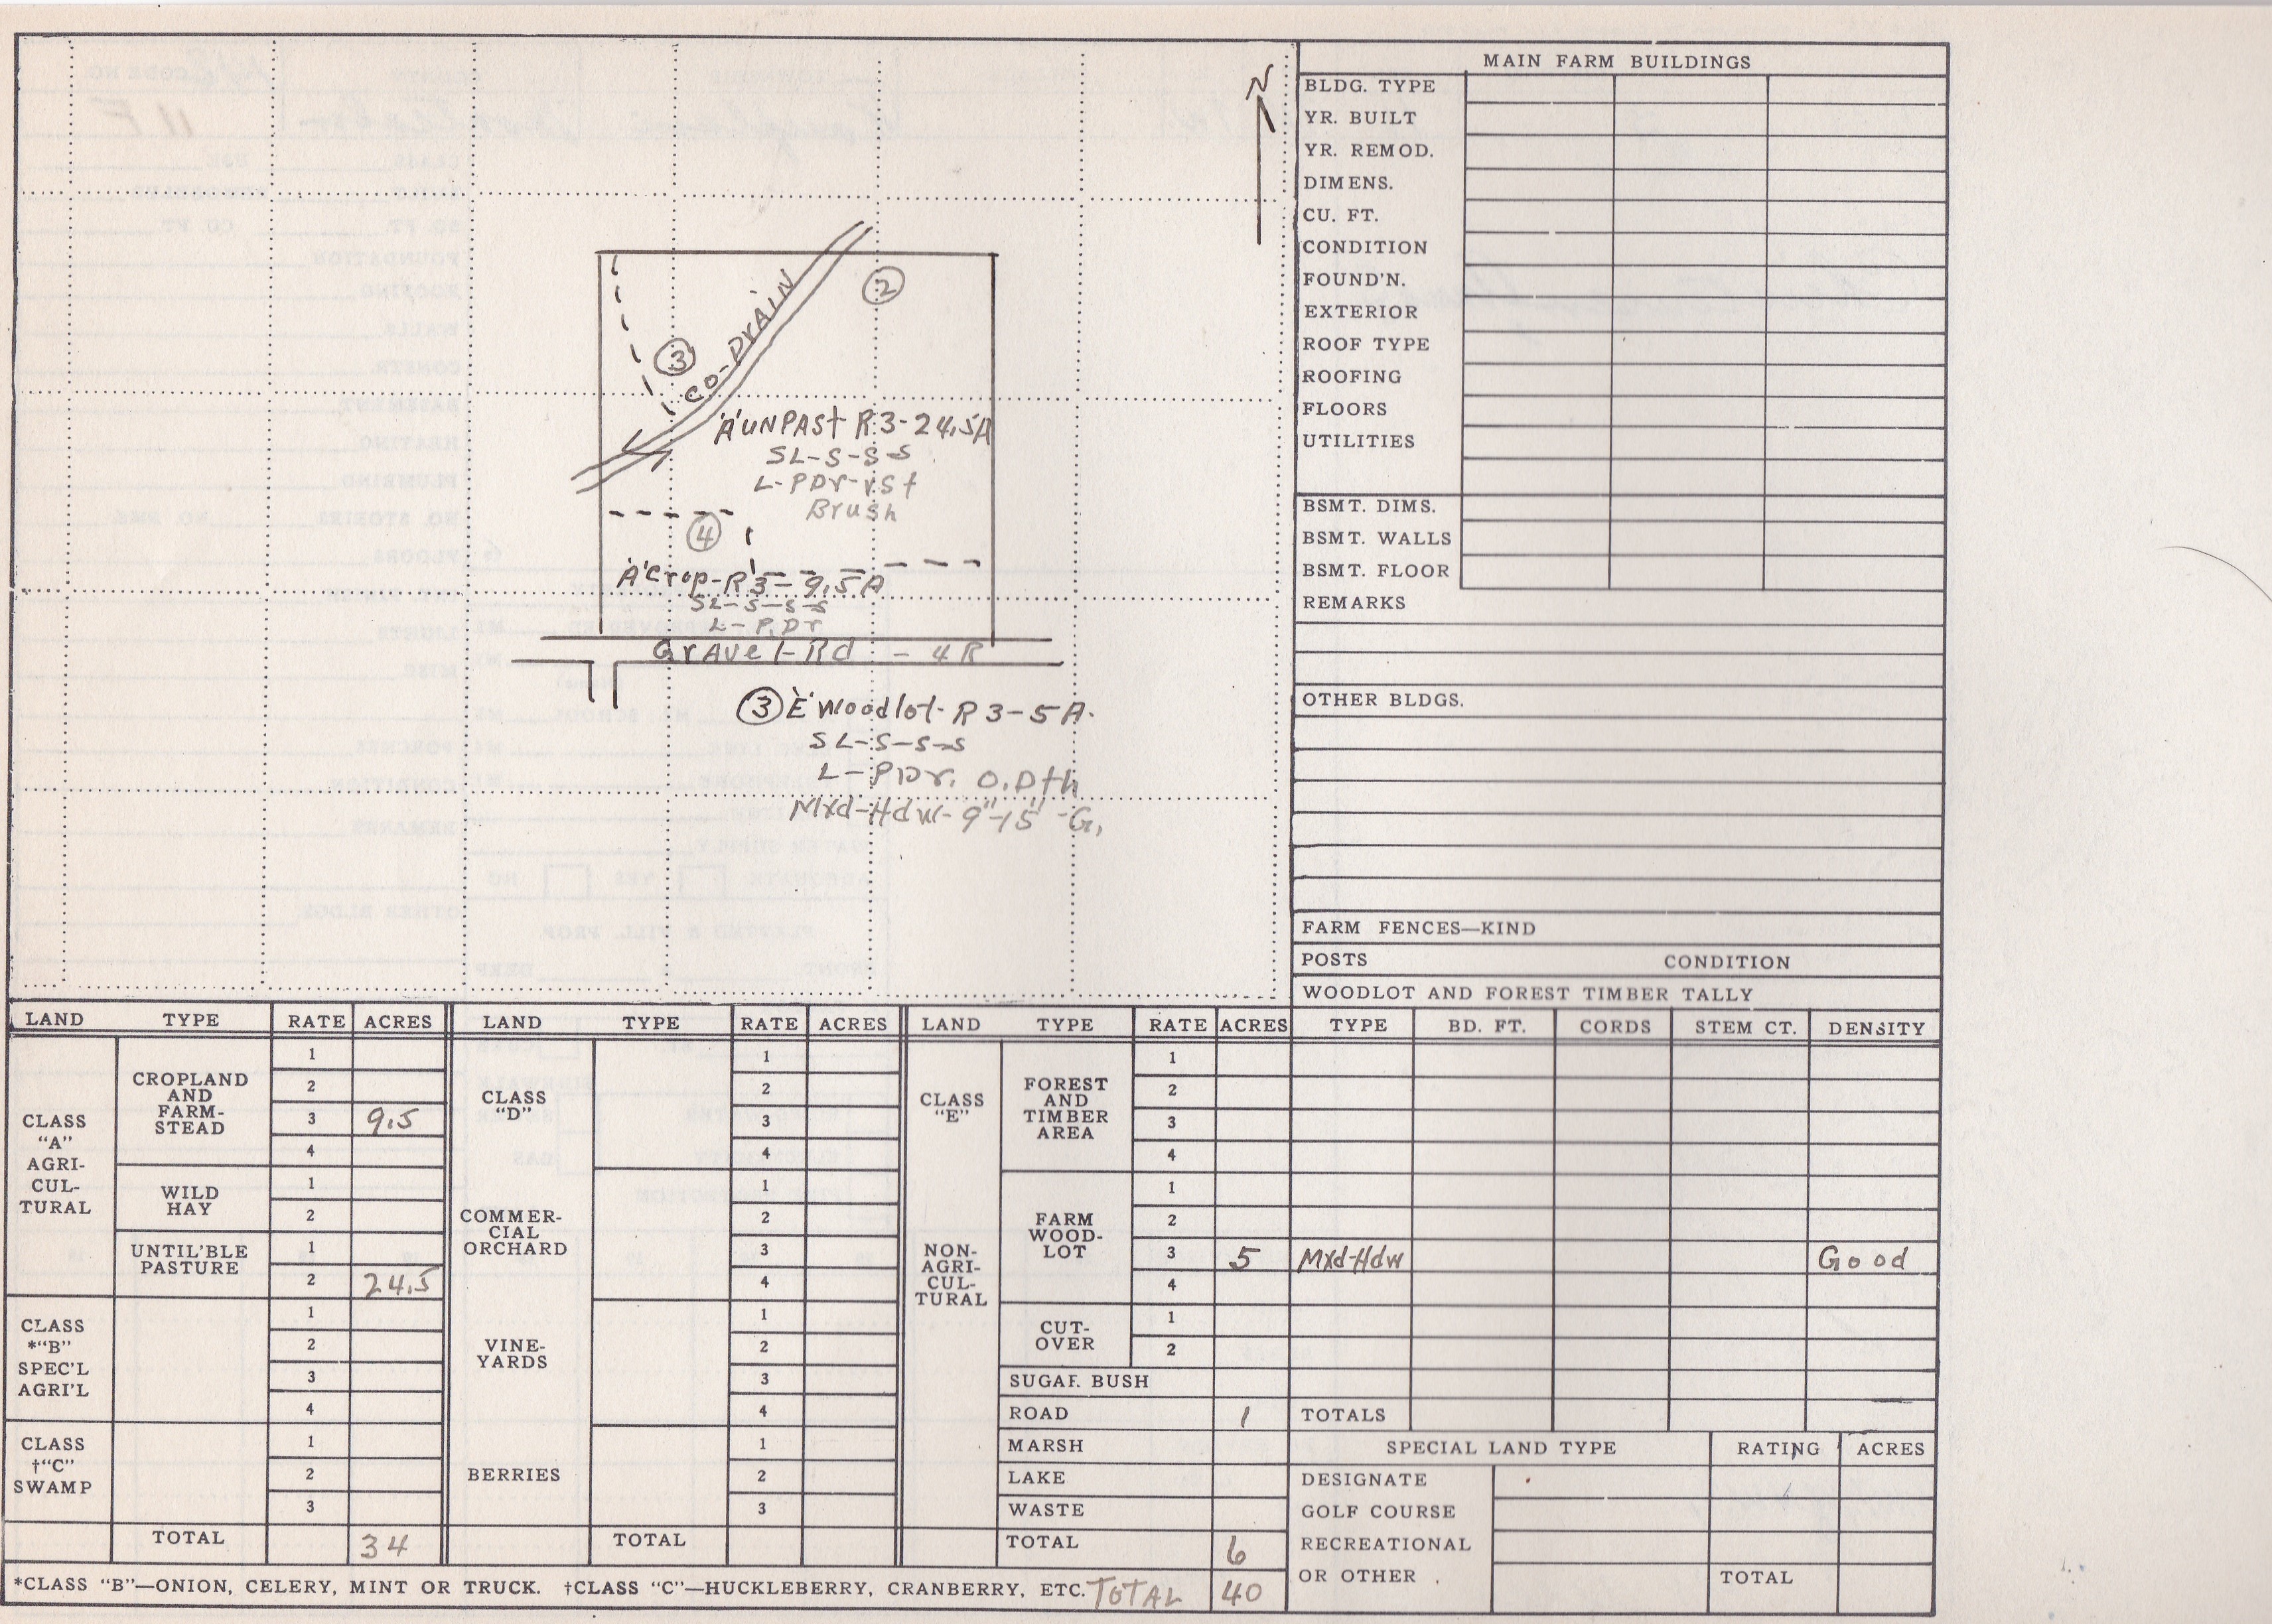 N
②
③
CO-DRAIN
"A" UNPAST R3-24.5A
SL-S-S-S
L-PDr-vst
Brush
④
"A" Crop-R3-9.5A
SL-S-S-S
L-P.Dr
Gravel-Rd - 4R
③ "E" Woodlot-R3-5A.
SL-S-S-S
L-PDr. O.Dth
Mxd-Hdw-9"-15"-G.
MAIN FARM BUILDINGS
BLDG. TYPE
YR. BUILT
YR. REMOD.
DIMENS.
CU. FT.
CONDITION
FOUND'N.
EXTERIOR
ROOF TYPE
ROOFING
FLOORS
UTILITIES
BSMT. DIMS.
BSMT. WALLS
BSMT. FLOOR
REMARKS
OTHER BLDGS.
FARM FENCES—KIND
POSTS CONDITION
WOODLOT AND FOREST TIMBER TALLY
TYPE BD. FT. CORDS STEM CT. DENSITY
Mxd-Hdw Good
TOTALS
SPECIAL LAND TYPE RATING ACRES
DESIGNATE
GOLF COURSE
RECREATIONAL
OR OTHER TOTAL
LAND TYPE RATE ACRES
CLASS
"A"
AGRI-
CUL-
TURAL
CROPLAND
AND
FARM-
STEAD
1
2
3 9.5
4
WILD
HAY
1
2
UNTIL'BLE
PASTURE
1
2 24.5
CLASS
*"B"
SPEC'L
AGRI'L
1
2
3
4
CLASS
†"C"
SWAMP
1
2
3
TOTAL 34
LAND TYPE RATE ACRES
CLASS
"D"
COMMER-
CIAL
ORCHARD
VINE-
YARDS
BERRIES
1
2
3
4
1
2
3
4
1
2
3
4
1
2
3
TOTAL
LAND TYPE RATE ACRES
CLASS
"E"
NON-
AGRI-
CUL-
TURAL
FOREST
AND
TIMBER
AREA
1
2
3
4
FARM
WOOD-
LOT
1
2
3 5
4
CUT-
OVER
1
2
SUGAR BUSH
ROAD 1
MARSH
LAKE
WASTE
TOTAL 6
*CLASS "B"—ONION, CELERY, MINT OR TRUCK. †CLASS "C"—HUCKLEBERRY, CRANBERRY, ETC. TOTAL 40